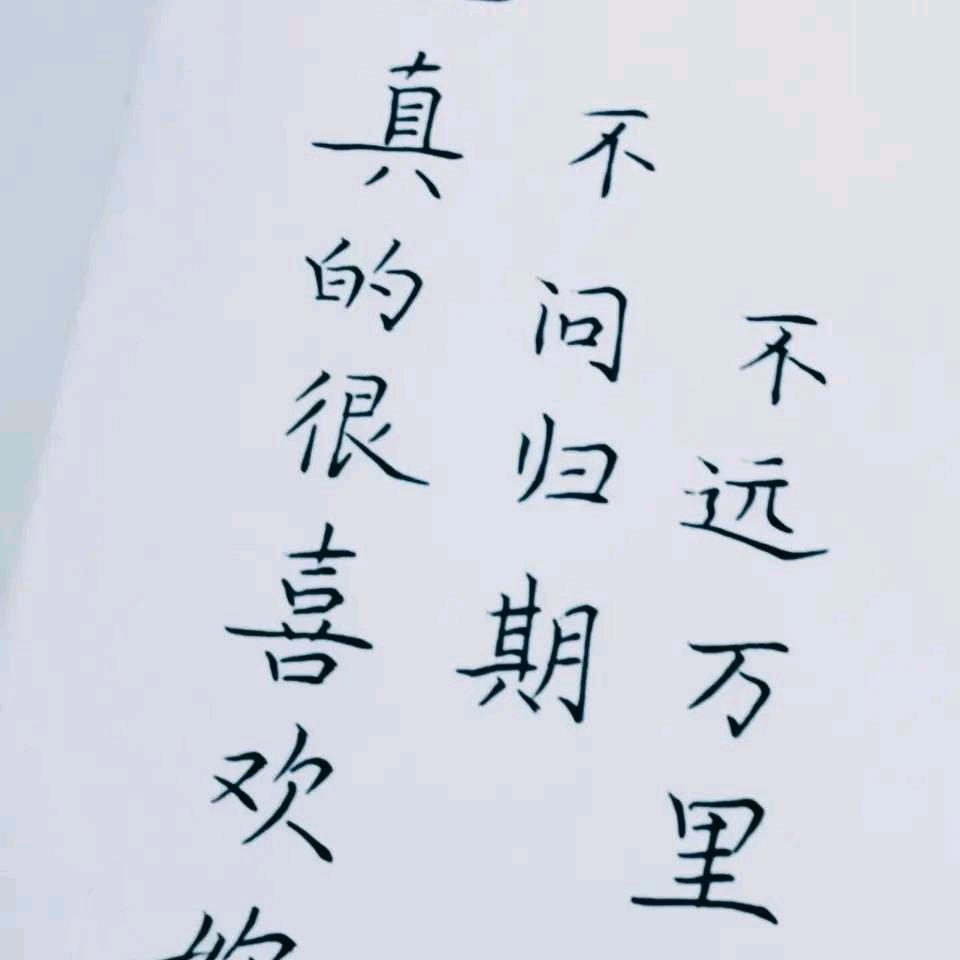 不远万里
不问归期
真的很喜欢